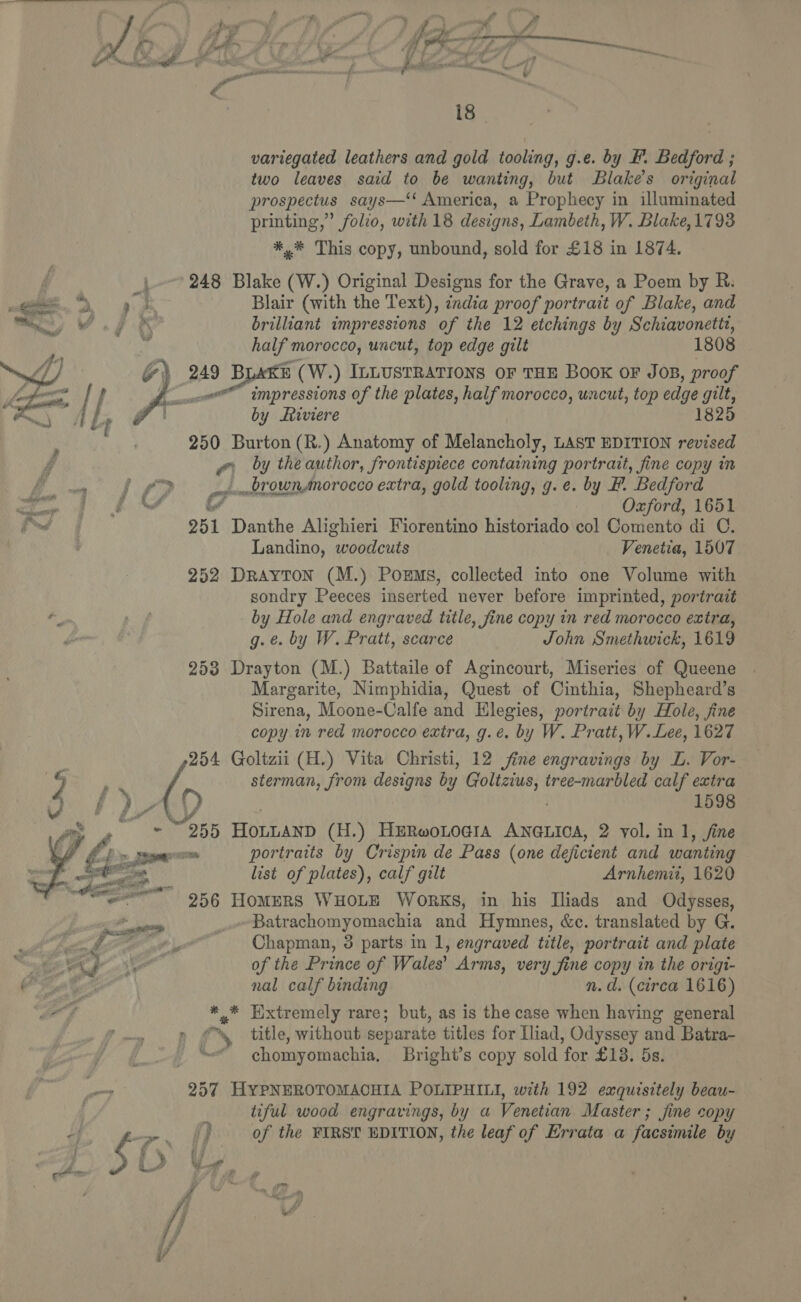 18
variegated leathers and gold tooling, g.e. by F. Bedford ;
two leaves said to be wanting, but Blake's original
prospectus says—“ America, a Prophecy in illuminated
printing,” folio, with 18 designs, Lambeth, W. Blake, 1793
*⁎* This copy, unbound, sold for £18 in 1874.
248 Blake (W.) Original Designs for the Grave, a Poem by R.
Blair (with the Text), india proof portrait of Blake, and
brilliant impressions of the 12 etchings by Schiavonetti,
half morocco, uncut, top edge gilt 1808
249 BLAKE (W.) ILLUSTRATIONS OF THE BOOK OF JOB, proof
impressions of the plates, half morocco, uncut, top edge gilt,
by Riviere 1825
250 Burton (R.) Anatomy of Melancholy, LAST EDITION revised
by the author, frontispiece containing portrait, fine copy in
brown morocco extra, gold tooling, g. e. by F. Bedford
Oxford, 1651
251 Danthe Alighieri Fiorentino historiado col Comento di C.
Landino, woodcuts Venetia, 1507
252 DRAYTON (M.) POEMS, collected into one Volume with
sondry Peeces inserted never before imprinted, portrait
by Hole and engraved title, fine copy in red morocco extra,
g. e. by W. Pratt, scarce John Smethwick, 1619
253 Drayton (M.) Battaile of Agincourt, Miseries of Queene
Margarite, Nimphidia, Quest of Cinthia, Shepheard's
Sirena, Moone-Calfe and Elegies, portrait by Hole, fine
copy in red morocco extra, g. e. by W. Pratt, W. Lee, 1627
254 Goltzii (H.) Vita Christi, 12 fine engravings by L. Vor-
sterman, from designs by Goltzius, tree-marbled calf extra
1598
255 HOLLAND (H.) HERWOLOGIA ANGLICA, 2 vol. in 1, fine
portraits by Crispin de Pass (one deficient and wanting
list of plates), calf gilt Arnhemii, 1620
256 HOMERS WHOLE WORKS, in his Iliads and Odysses,
Batrachomyomachia and Hymnes, &c. translated by G.
Chapman, 3 parts in 1, engraved title, portrait and plate
of the Prince of Wales' Arms, very fine copy in the origi-
nal calf binding n. d. (circa 1616)
*⁎* Extremely rare; but, as is the case when having general
title, without separate titles for Iliad, Odyssey and Batra-
chomyomachia. Bright's copy sold for £13. 5s.
257 HYPNEROTOMACHIA POLIPHILI, with 192 exquisitely beau-
tiful wood engravings, by a Venetian Master ; fine copy
of the FIRST EDITION, the leaf of Errata a facsimile by